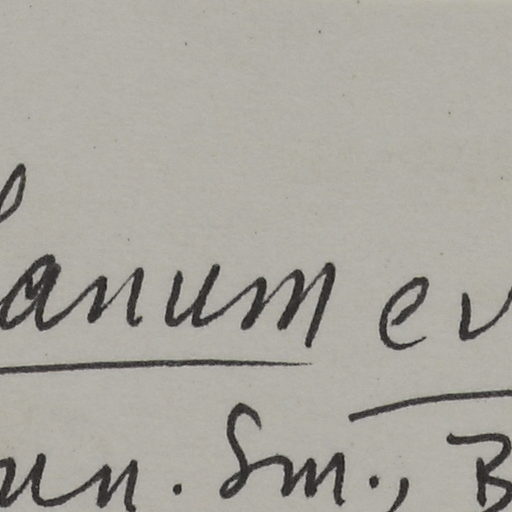 lanum ev
un. Sm., B